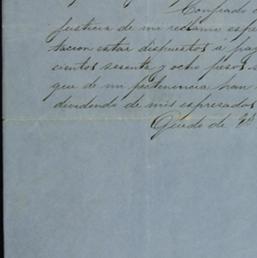 Confiado
justicia de mi reclamo espe
tacion estar dispuestos a pa
cientos sesenta y ocho pesos
que de mi pertenencia han
dividendo de mis espresados
Quedo de